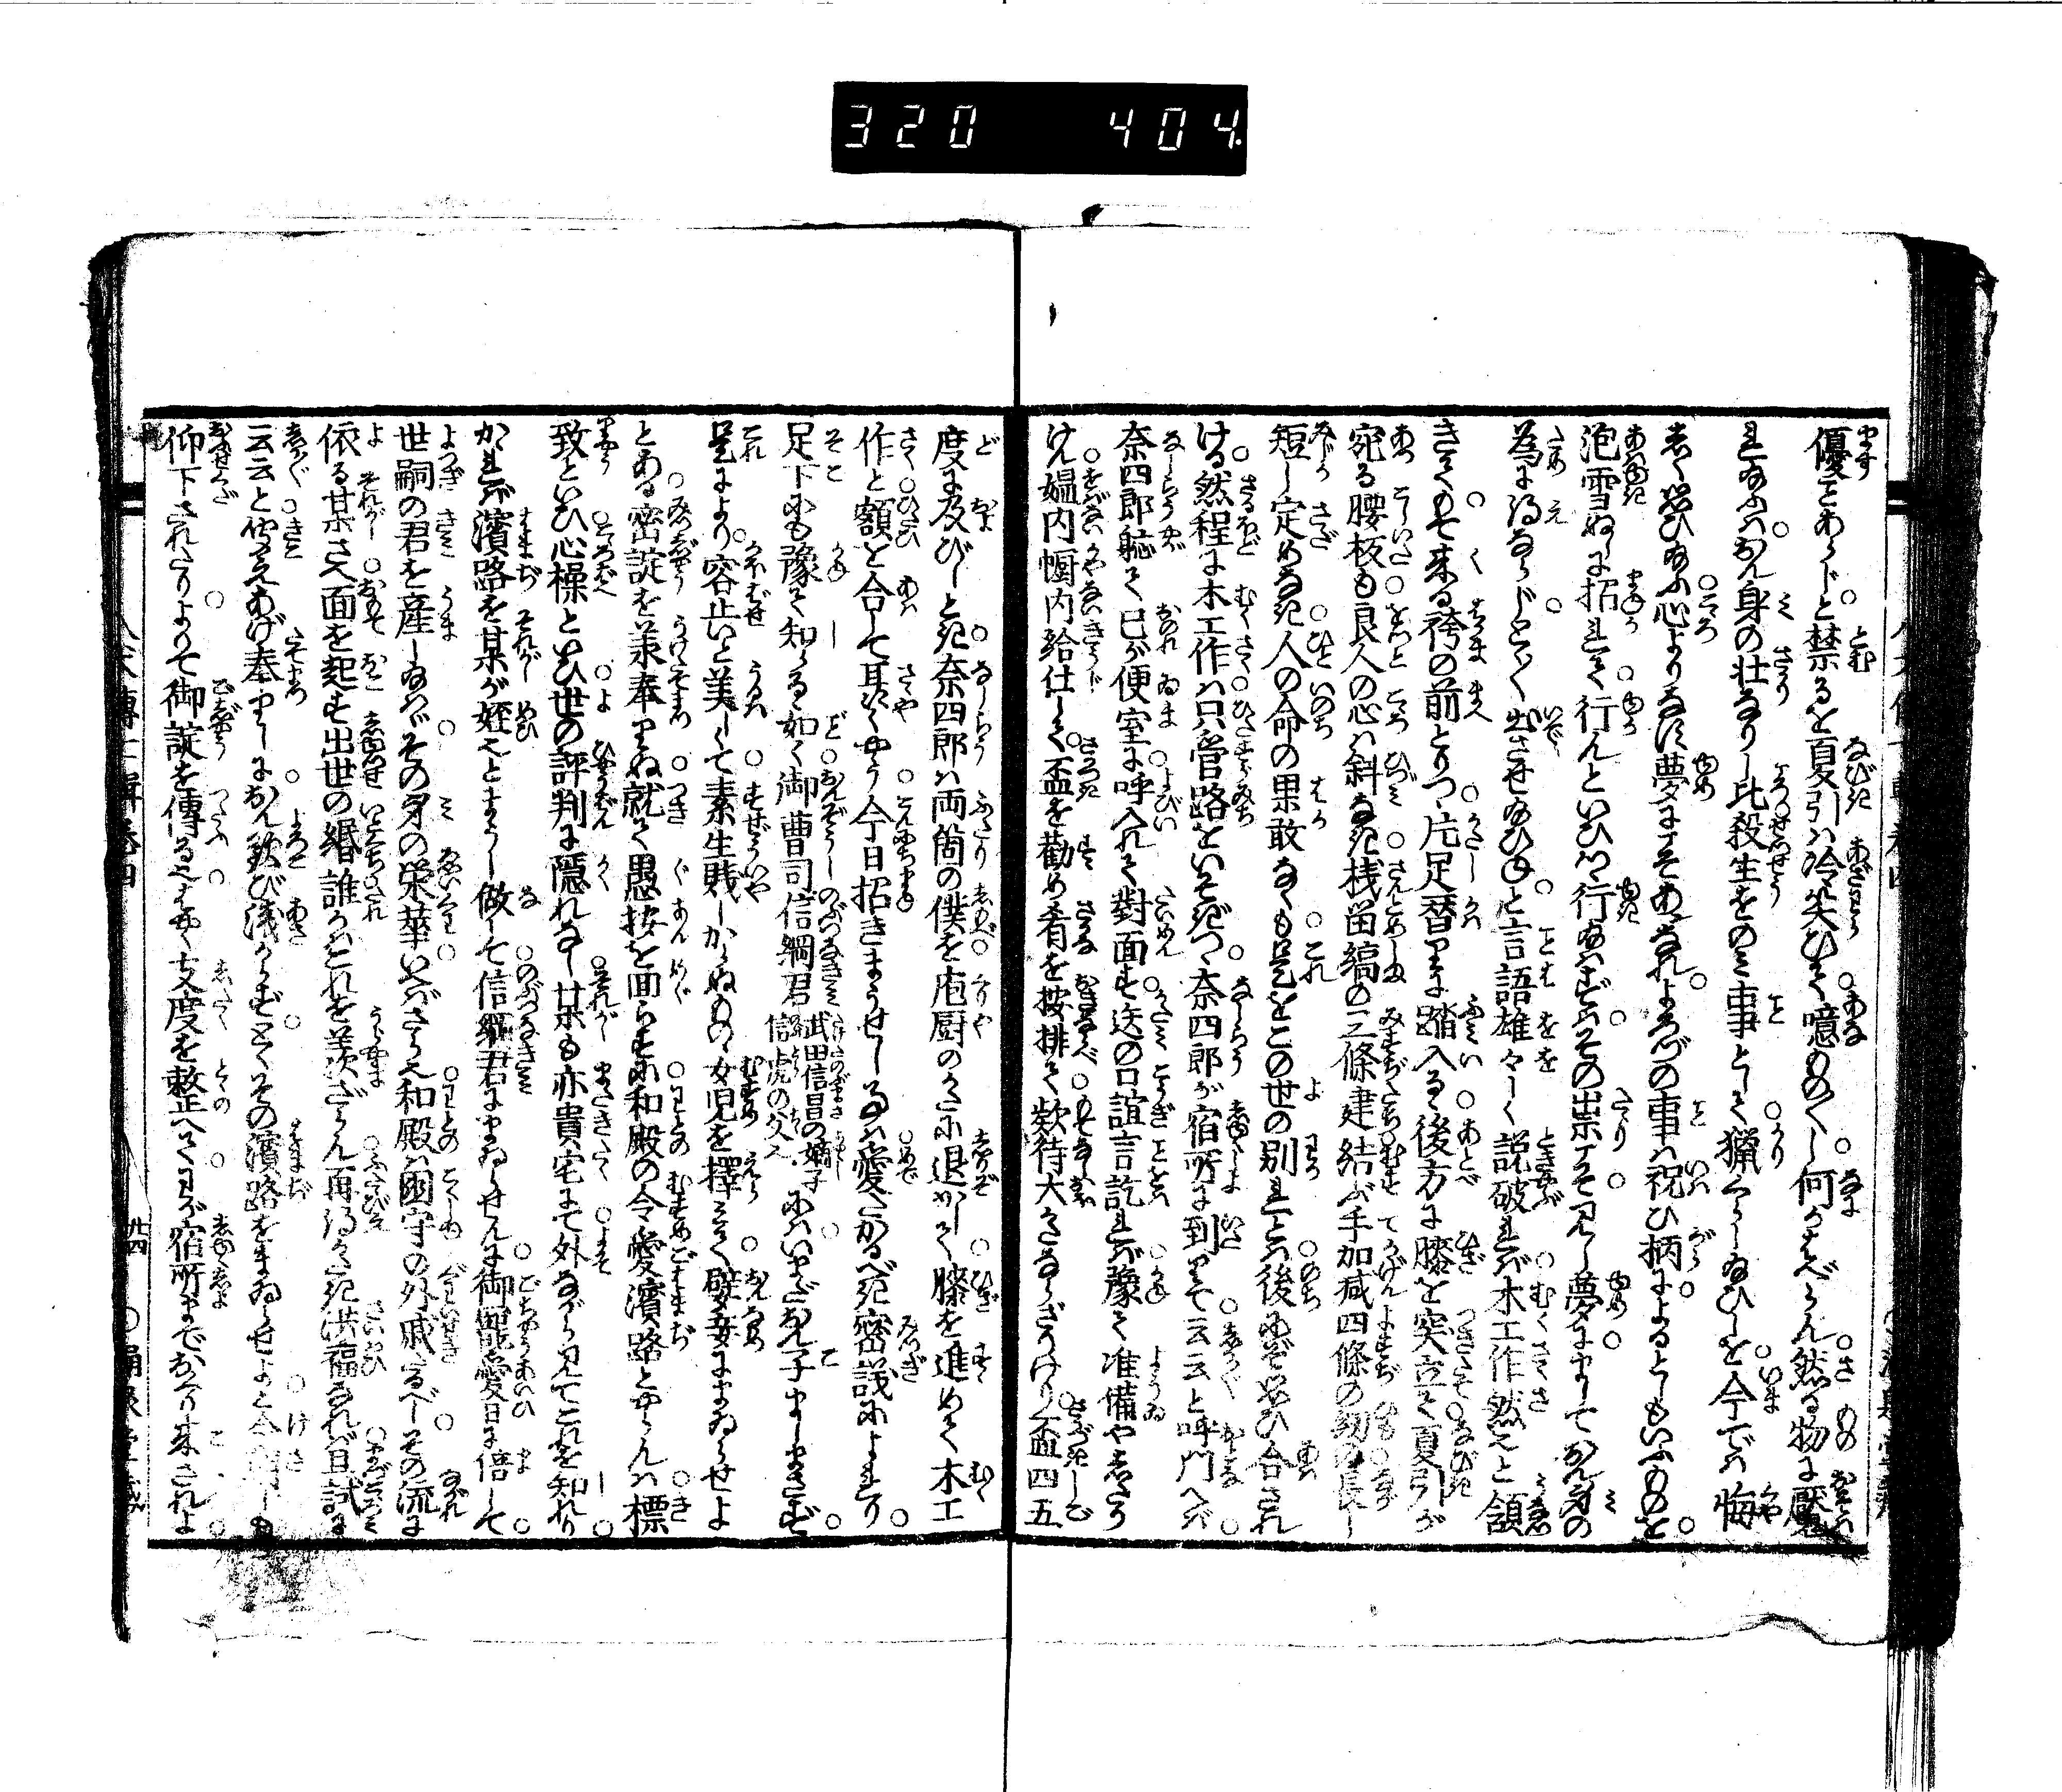 320 404
優ことあらじと禁るを夏引は冷笑ひて噫ものものし何かはべらん然る物に魘
れ給ふはおん身の壮なりし比殺生をのみ事として猟くらし給ひしを今では悔
しく思ひ給ふ心よりなす夢にこそあるなれよろづの事は祝ひ柄によるとしもいふものを
泡雪ぬしに招れて行んといひつつ行給はずはその祟こそ見し夢にまして おん身の
為に得ならじとくとく出させ給ひねと言語雄々しく説破れば木工作然なりと領
きてもて来る袴の前とりつつ片足替りに踏入るる後方に膝を突立て夏引が
宛る腰板も良人の心は斜なき桟留縞の三條建結ぶ手加減四條の紐の長し
短し定めなき人の命の果敢なくも是をこの世の別れとは後にぞ思ひ合され
ける然程に木工作は只管路をいそぎつつ奈四郎が宿所に到りて云云と呼門へば
奈四郎軈て己が便室に呼入れて對面す迭の口誼言訖れば豫て准備やしたり
けん媼内幮内給仕して盃を勸め肴を按排て欵待大かたならざりけり盃四五
度に及びしとき奈四郎は両箇の僕を庖厨のかたに退かして膝を進めて木工
作と額を合して耳語くやう今日招きまうせしよしは愛たかるべき密議によれり
足下にも豫て知らるる如く御曹司信綱君 武田信昌の嫡子信虎の父なり にはいまだおん子ましまさず
是により容止いと美しくて素生賤しからぬものの女児を擇みて嬖妾にまゐらせよ
とある密諚を羕奉りぬ就て愚按を面らすに和殿の令愛濱路とやらんは標
致といひ心操といひ世の評判に隠れなし某も亦貴宅にて外ながら見てこれを知れり
かかれば濱路を某が姪なりとまうし做して信綱君にまゐらせんに御寵愛日に倍して
世嗣の君を産し給はばその身の栄華いへばさらなり和殿は國守の外戚たるべしその流に
依る某さへ面を起す出世の緡誰かはこれを羨ざらん再得がたき洪福なれば且試に
云云と聞えあげ奉りしにおん歓び浅からずとくその濱路をまゐらせよと今朝しも
仰下されたりよりて御諚を傳るなりはやく支度を整へてわが宿所までおくり来されよ